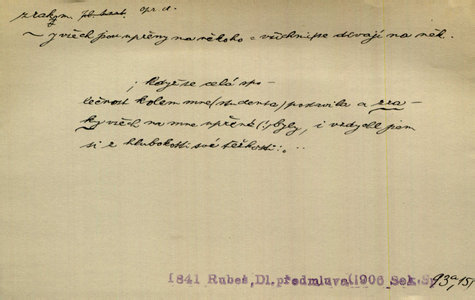 zrak, m.
~ y všech jsou upřeny na někoho = všichni se dívají na něk.
; když se celá spo-
lečnost kolem mne (studenta) postavila a zra-
ky všech na mne upřené (!) byly, i vzdychl jsem
si z hlubokosti své těžkosti: ..
1841 Rubeš, Dl. předmluva (1906 Sek. Sp 93a, 15)